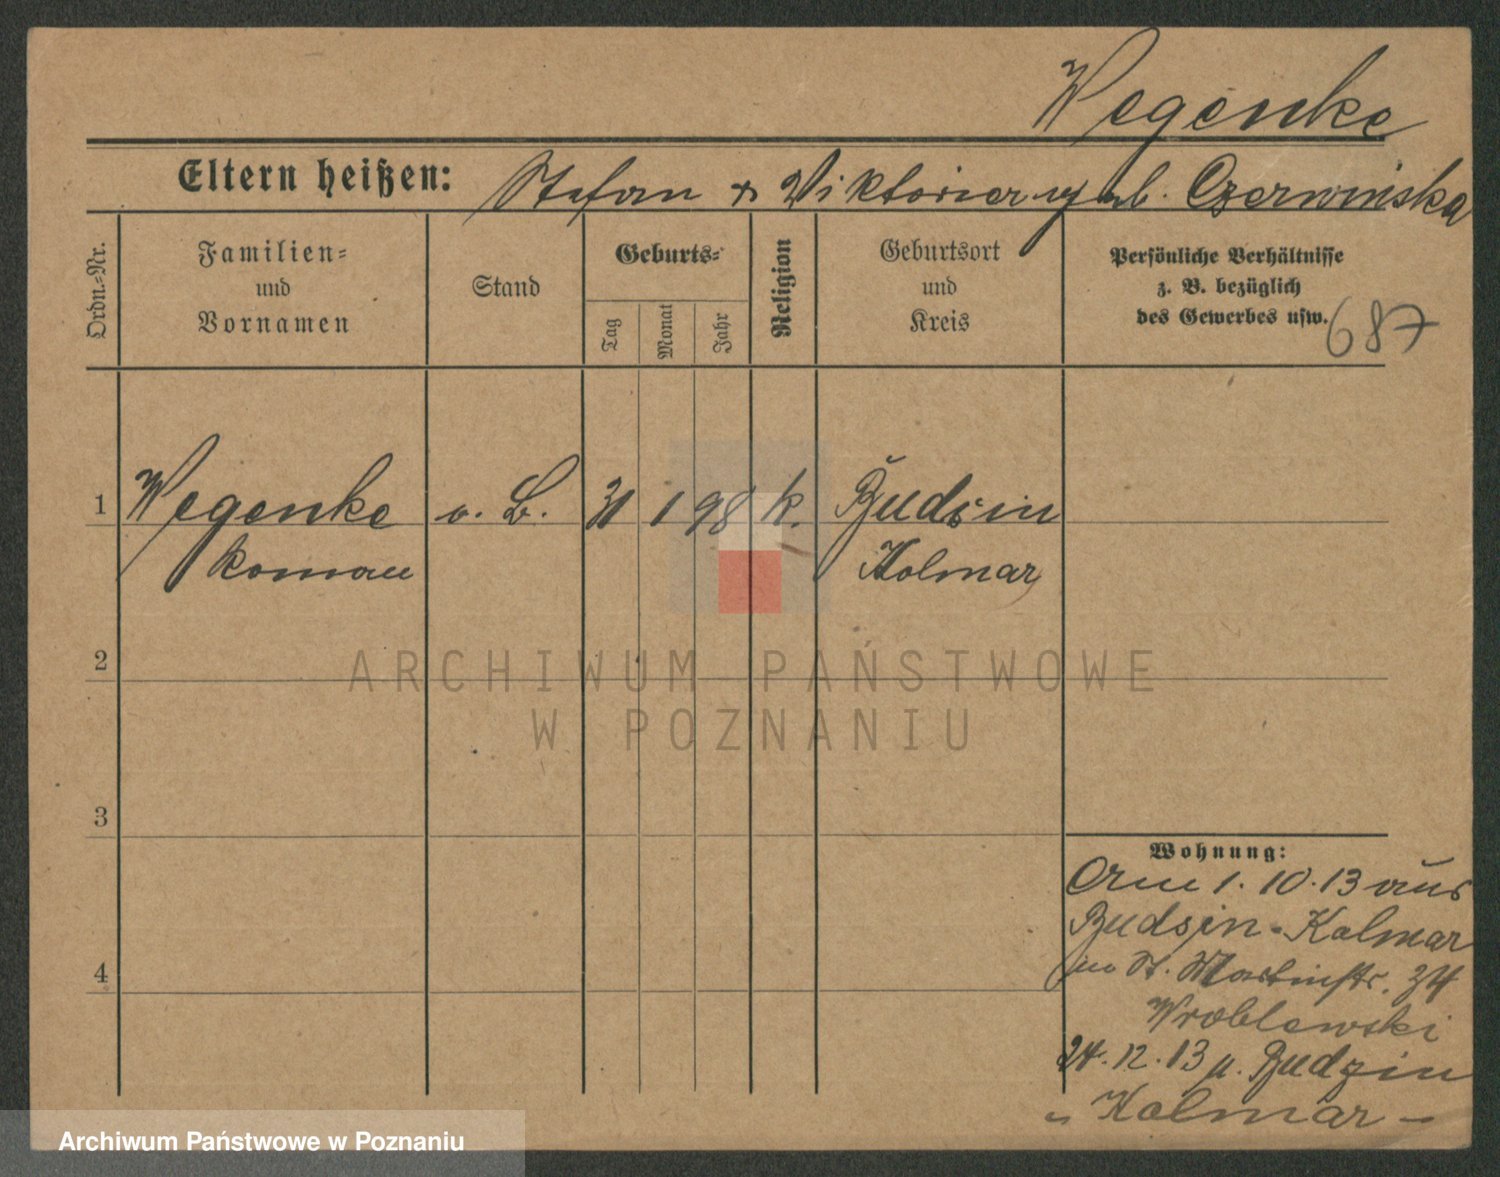 Wegenke
Eltern heißen: Stefan & Viktoria geb. Czerwinska
Ordn.-Nr.
Familien- und Vornamen
Stand
Geburts-
Tag
Monat
Jahr
Religion
Geburtsort und Kreis
Persönliche Verhältnisse
z. B. bezüglich
des Gewerbes usw.
687
1 Wegenke o. B. 31 1 98 k. Budsin
Roman Kolmar
2
ARCHIWUM PAŃSTWOWE
W POZNANIU
3
Wohnung:
Am 1.10.13 aus
Budsin-Kolmar
St. Martinstr. 34
4
Wroblewski
24.12.13 n. Budzin
Kolmar
Archiwum Państwowe w Poznaniu